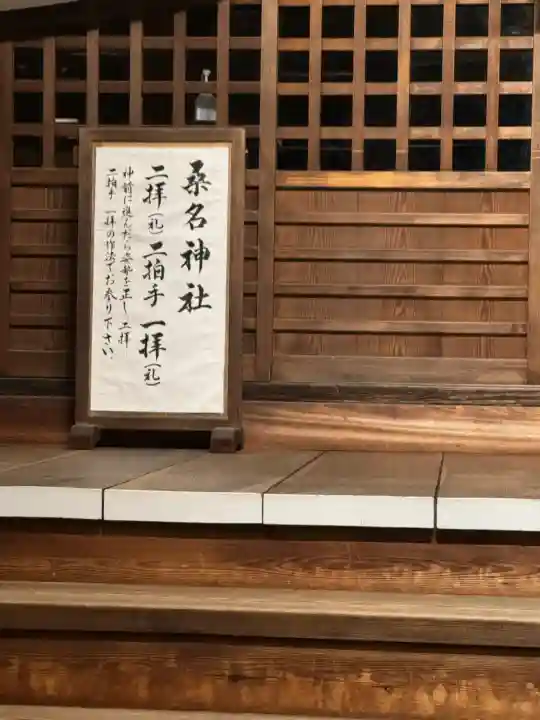 桑名神社
二拝(礼)二拍手 一拝(礼)
神前に進んだら姿勢を正し 二拝
二拍手 一拝の作法でお参り下さい。